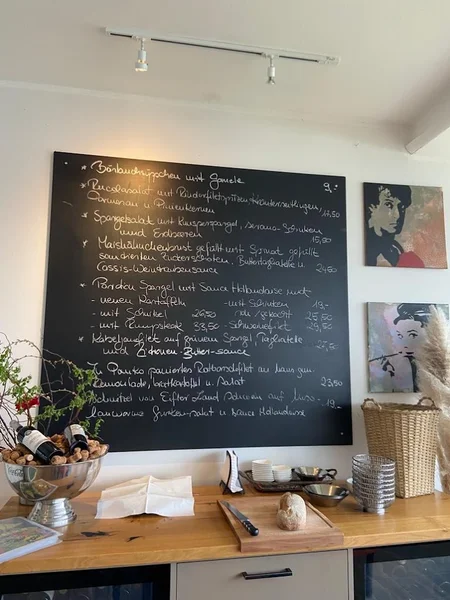 * Bärlauchsüppchen mit Garnele 9,-
* Rucolasalat mit Rinderfiletspitzen,
Parmesan u. Pinienkernen 14,50
* Spargelsalat mit Knusperspargel, Serrano-Schinken
und Erdbeeren 15,50
* Maishähnchenbrust gefüllt mit Spinat
Zuckerschoten, Buttertagliatelle u.
Cassis-Weintraubensauce 24,50
* Portion Spargel mit Sauce Hollandaise mit:
- neuen Kartoffeln - mit Schinken 19,-
- mit Schnitzel 26,50 25,50
- mit Rumpsteak 33,50 - Schweinefilet 29,50
* Kabeljaufilet auf grünem Spargel, Tagliatelle
und Zitronen-Butter-sauce 27,50
In Panko paniertes Rotbarschfilet an
Remoulade, Bratkartoffel u. Salat 23,50
Schnitzel vom Eifler Land Schwein auf
Gurken-salat u Sauce Hollandaise 19,-